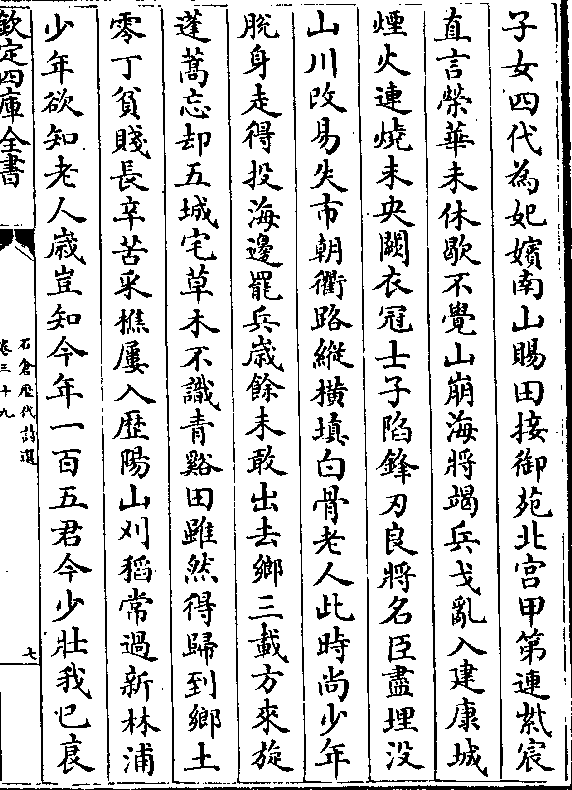 子女四代為妃嬪南山賜田接御苑北宮甲第連紫宸
直言榮華未休歇不覺山崩海將竭兵戈亂入建康城
煙火連燒未央闕衣冠士子陷鋒刃良將名臣盡埋没
山川改易失市朝衢路縱横填白骨老人此時尚少年
脱身走得投海邊罷兵歲餘未敢出去鄉三載方來旋
蓬蒿忘却五城宅草木不識青谿田雖然得歸到鄉土
零丁貧賤長辛苦采樵屢入歴陽山刈稻常過新林浦
少年欲知老人歲豈知今年一百五君今少壯我已衰
欽定四庫全書
石倉歴代詩選
卷三十九
七